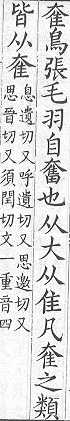 奞鳥張毛羽自奮也从大从隹凡奞之類
皆从奞
息遺切又呼遺切又思邀切又
思晉切又須閏切文一重音四